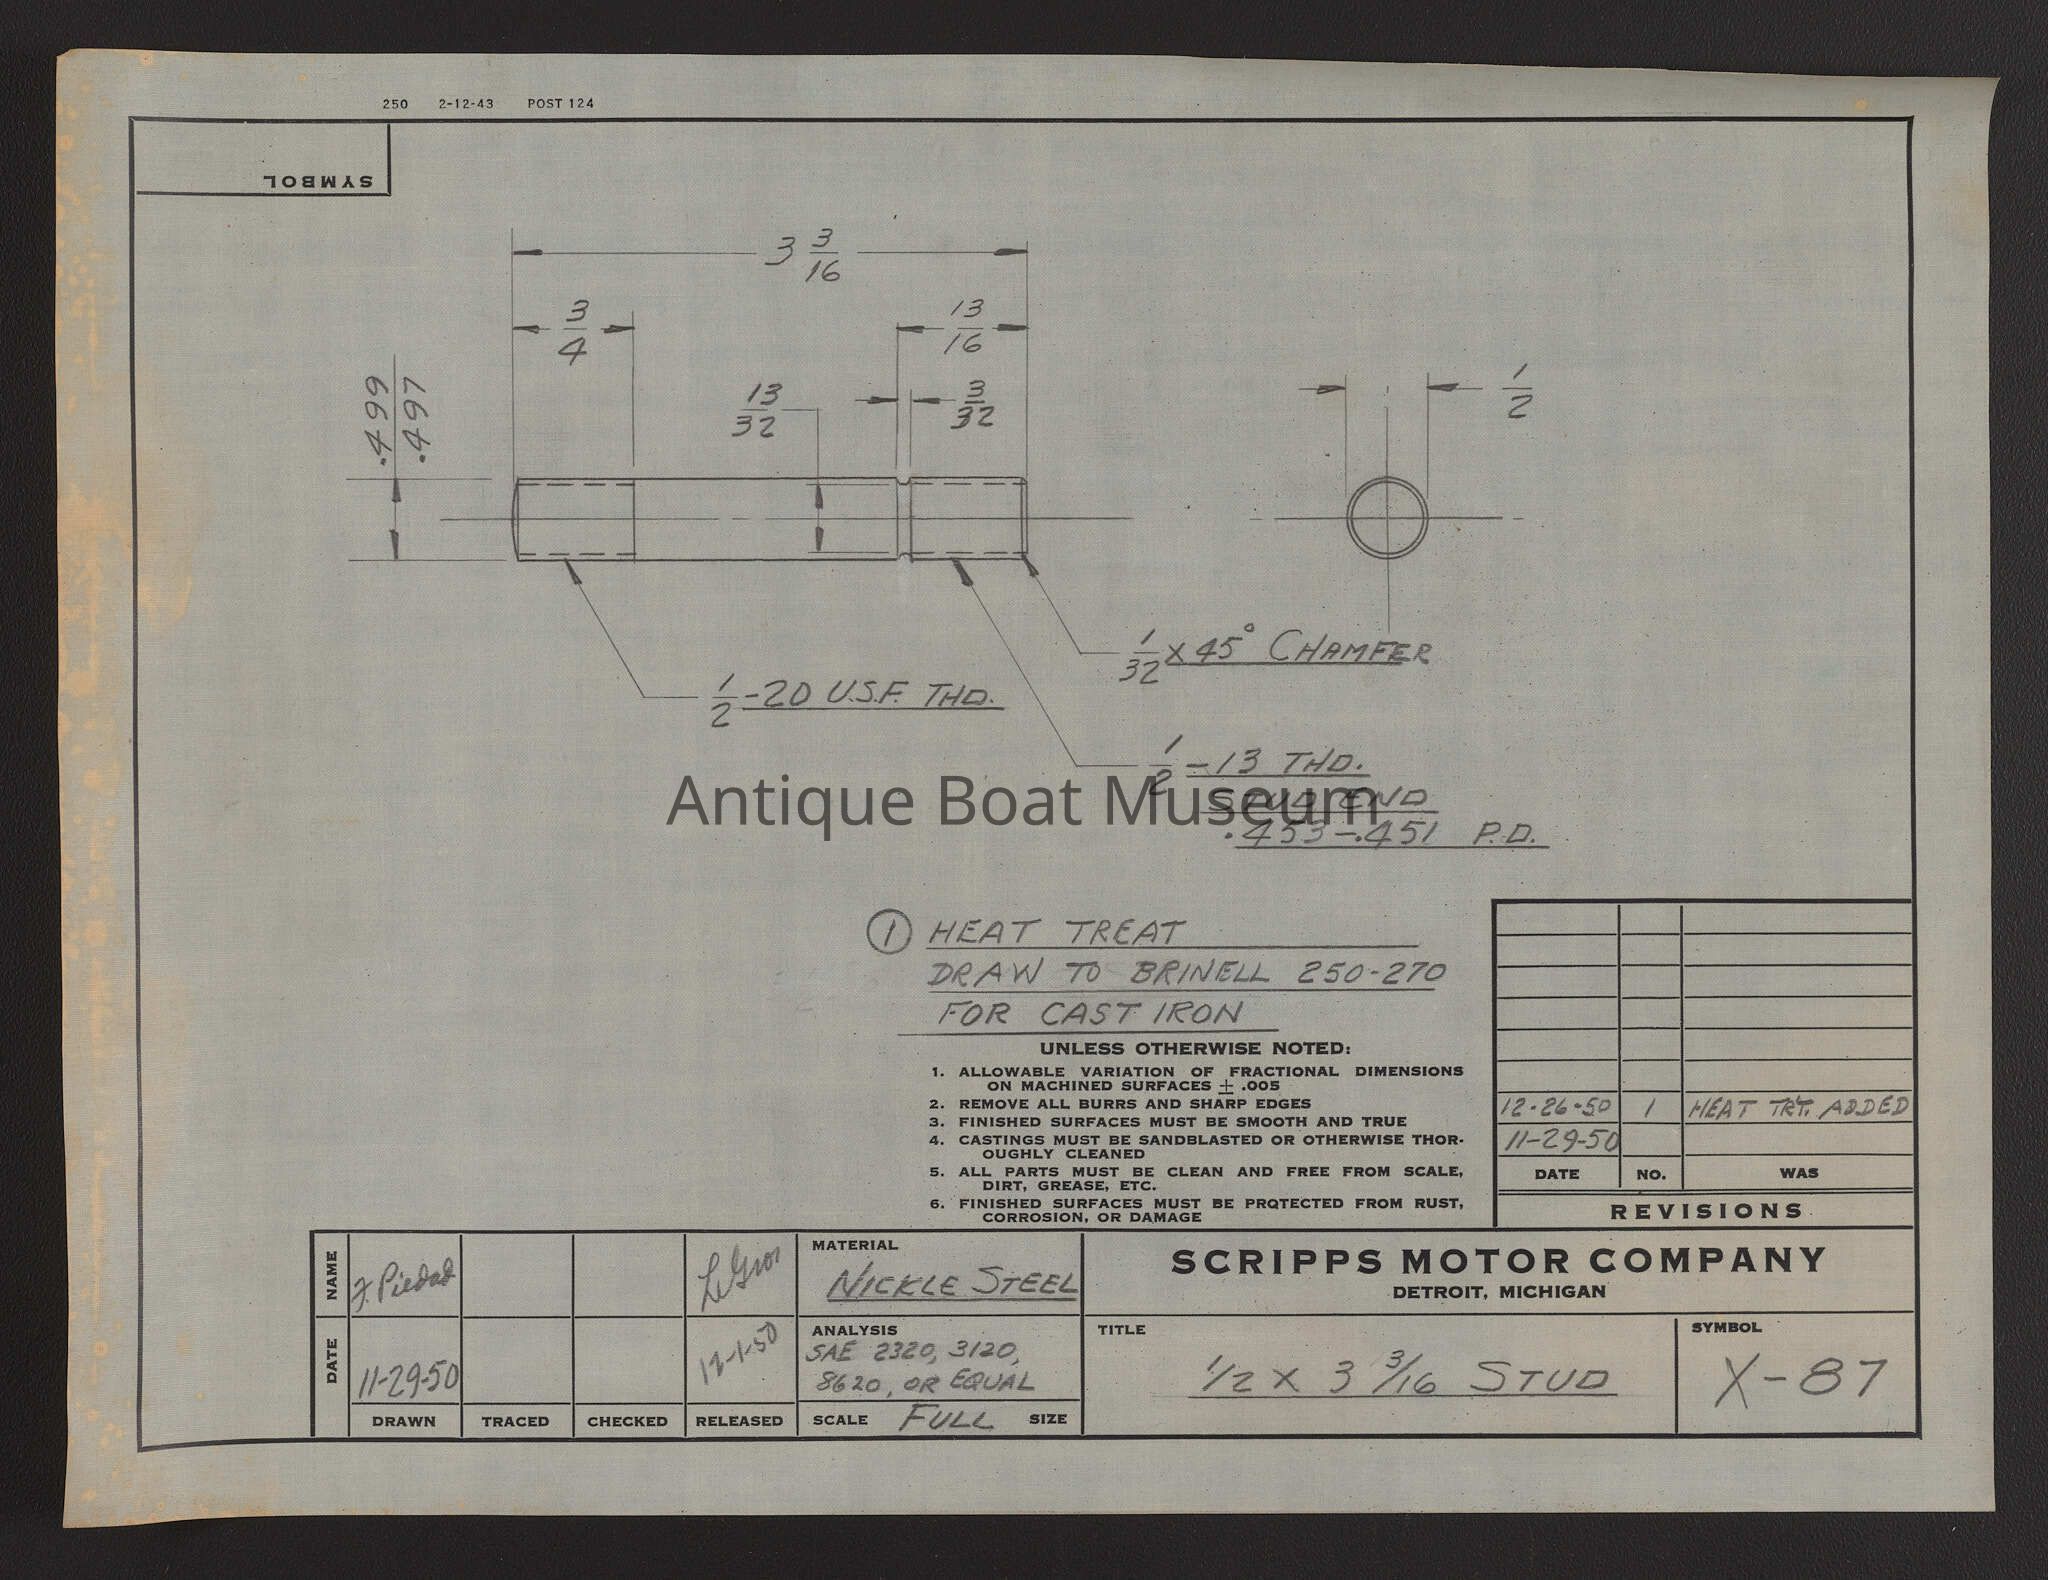 250 2-12-43 POST 124
SYMBOL
3 3/16
3/4
13/16
.499
.497
13/32
3/32
1/2
1/32 x 45° CHAMFER
1/2-20 U.S.F. THD.
1/2-13 THD.
STUD END
.453-.451 P.D.
Antique Boat Museum
1 HEAT TREAT
DRAW TO BRINELL 250-270
FOR CAST IRON
UNLESS OTHERWISE NOTED:
1. ALLOWABLE VARIATION OF FRACTIONAL DIMENSIONS
ON MACHINED SURFACES ± .005
2. REMOVE ALL BURRS AND SHARP EDGES
3. FINISHED SURFACES MUST BE SMOOTH AND TRUE
4. CASTINGS MUST BE SANDBLASTED OR OTHERWISE THOR-
OUGHLY CLEANED
5. ALL PARTS MUST BE CLEAN AND FREE FROM SCALE,
DIRT, GREASE, ETC.
6. FINISHED SURFACES MUST BE PROTECTED FROM RUST,
CORROSION, OR DAMAGE
12-26-50 1 HEAT TRT. ADDED
11-29-50
DATE NO. WAS
REVISIONS
NAME F. Piedad
DATE 11-29-50 12-1-50
DRAWN TRACED CHECKED RELEASED
MATERIAL
NICKLE STEEL
ANALYSIS
SAE 2320, 3120,
8620, OR EQUAL
SCALE FULL SIZE
SCRIPPS MOTOR COMPANY
DETROIT, MICHIGAN
TITLE
1/2 X 3 3/16 STUD
SYMBOL
X-87